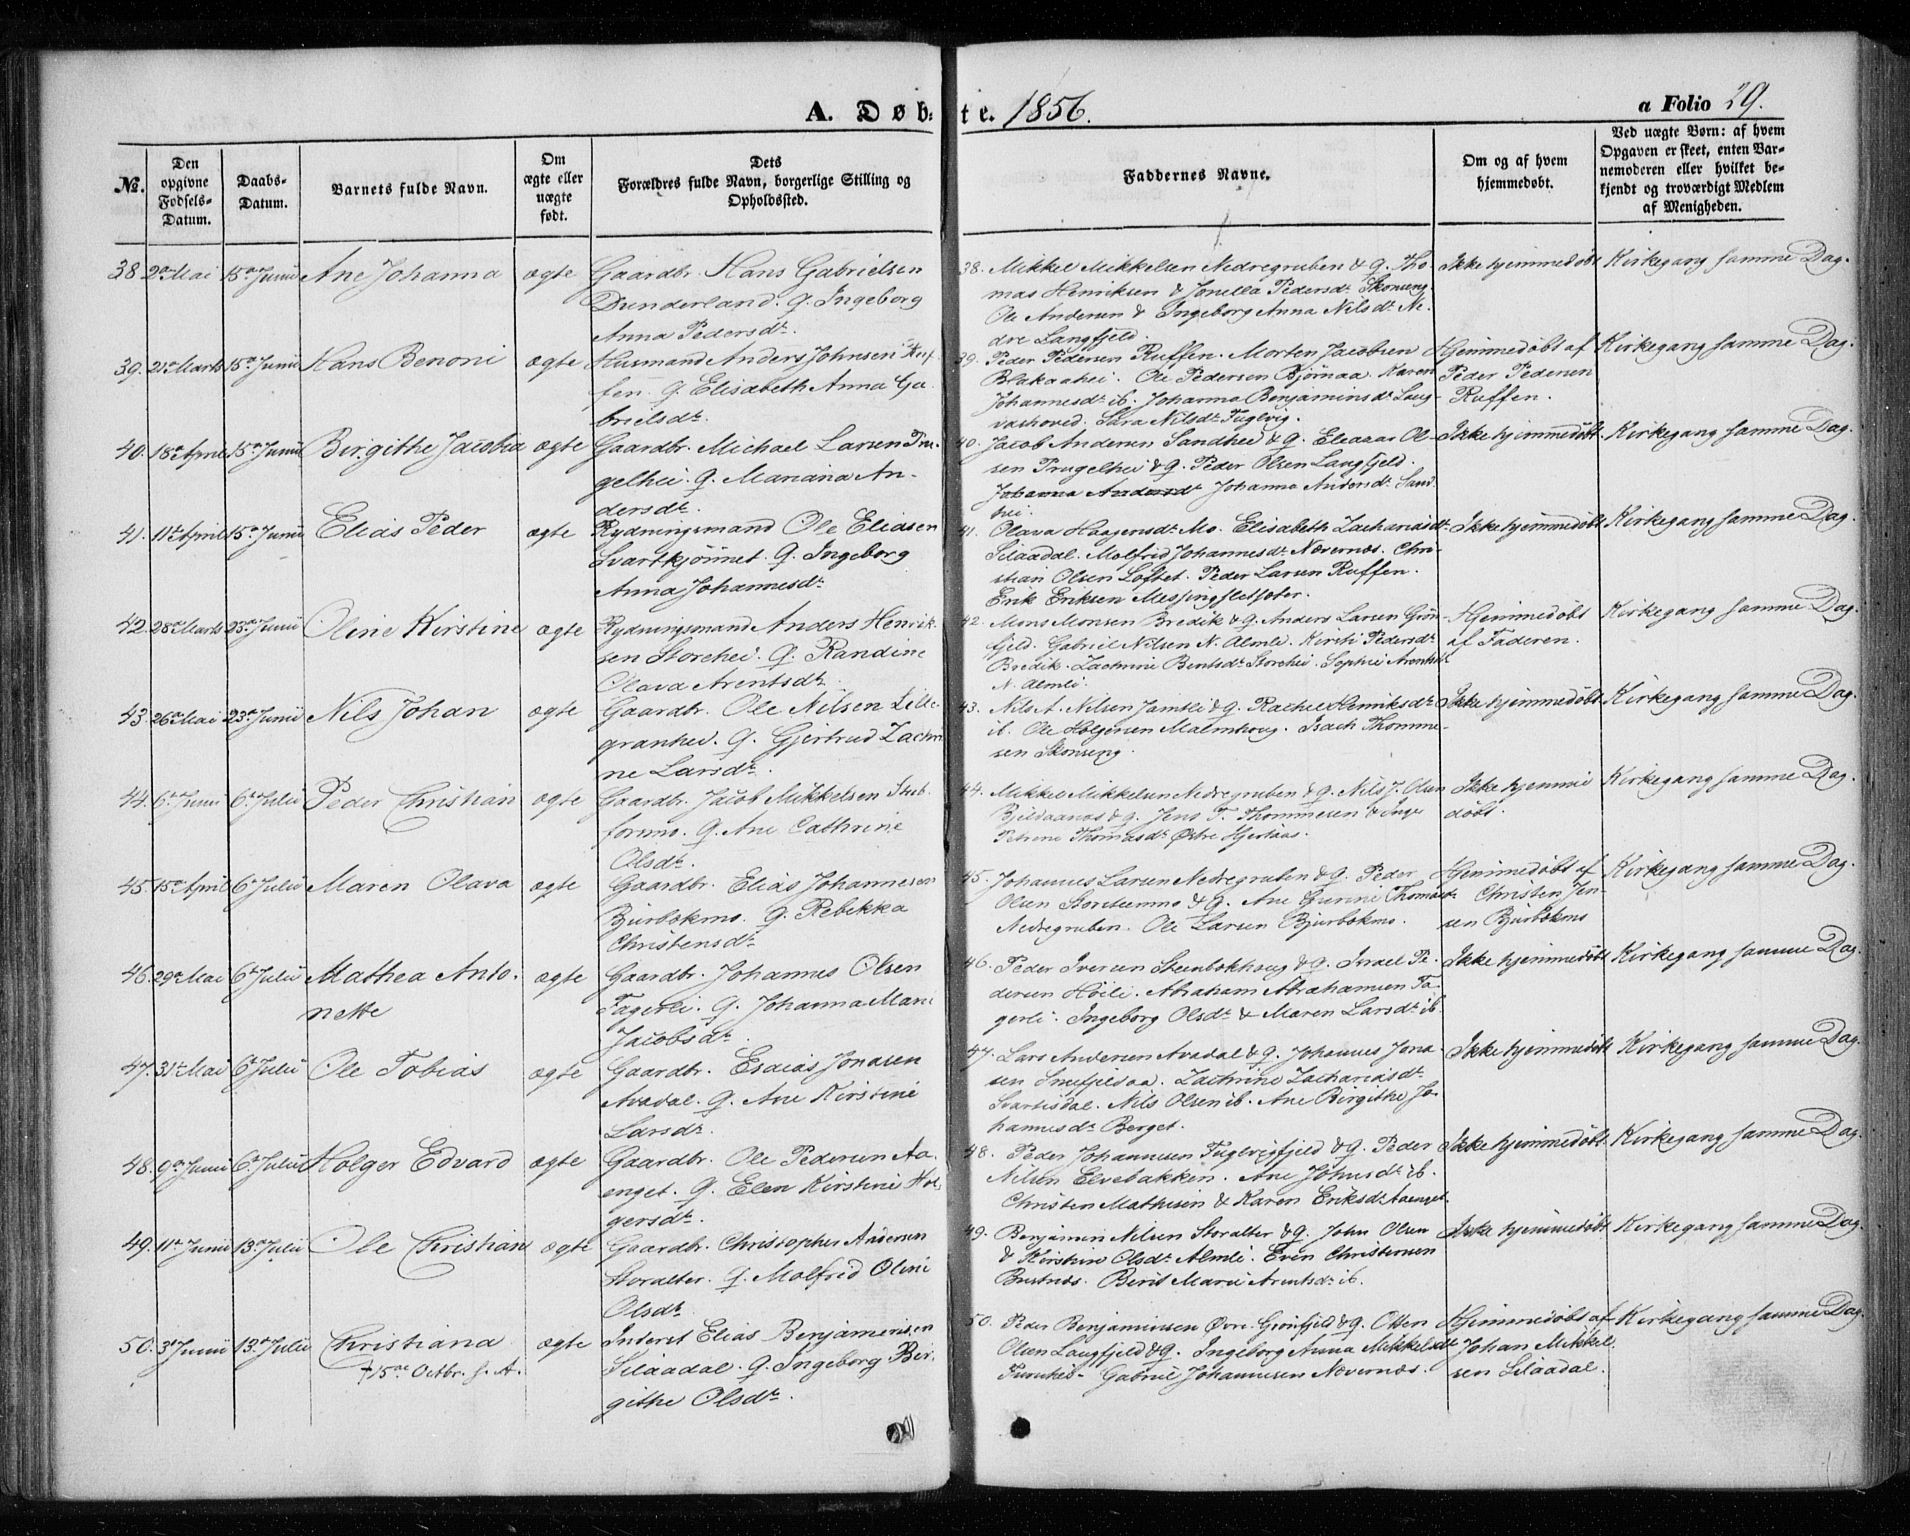 A. Døb: te. 1856.
a Folio 29.
No.
Den opgivne Fødsels-Datum.
Daabs-Datum.
Barnets fulde Navn.
Om ægte eller uægte født.
Dets Forældres fulde Navn, borgerlige Stilling og Opholdssted.
Faddernes Navne.
Om og af hvem hjemmedøbt.
Ved uægte Børn: af hvem Opgaven er skeet, enten Barnemoderen eller hvilket bekjendt og troværdigt Medlem af Menigheden.
38. 2den Mai 15de Junii Ane Johanna ægte Gaardbr. Hans Gabrielsen
Dunderland. g. Ingeborg
Anna Pedersdt.
38. Mikkel Mikkelsen Nedregruben & g. Tho-
mas Henriksen & Jonetta Pedersdt. Skonseng.
Ole Andersen & Ingeborg Anna Nilsdt. Ne-
dre Langfjeld.
Ikke hjemmedøbt Kirkegang samme Dag.
39. 21de Marts 15de Junii Hans Benoni ægte Husmand Anders Johnsen Ruf-
fen. g. Elisabeth Anna Ga-
brielsdt.
39. Peder Pedersen Ruffen. Morten Jacobsen
Blakaahei. Ole Pedersen Bjørnaa. Karen
Johannesdt. ib. Johanna Benjaminsdt. Lang-
vashoved. Sara Nilsdt. Fuglvig.
Hjemmedøbt af
Peder Pedersen
Ruffen.
Kirkegang samme Dag.
40. 18de April 15de Junii Birgithe Jacobia ægte Gaardbr. Michael Larsen Pru-
gelhei. g. Mariana An-
dersdt.
40. Jacob Andersen Sandhei & g. Eleazar Ol-
sen Prugelhei & g. Peder Olsen Langfjeld.
Johanna Andersdt Johanna Andersdt. Sand-
hei.
Ikke hjemmedøbt Kirkegang samme Dag.
41. 11te April 15de Junii Elias Peder ægte Rydningsmand Ole Eliasen
Svartkjønnet. g. Ingeborg
Anna Johannesdt.
41. Olava Haagensdt. Mo. Elisabeth Zachariasdt.
Silaadal. Molfrid Johannesdt. Nævernæs. Chri-
stian Olsen Loftet. Peder Larsen Ruffen.
Erik Eriksen Messingsletfoter.
Ikke hjemmedøbt Kirkegang samme Dag.
42. 28de Marts 23de Junii Oline Kirstine ægte Rydningsmand Anders Henrik-
sen Storehei. g. Randine
Olava Arentsdt.
42. Mons Monsen Bredik & g. Anders Larsen Grøn-
fjeld. Gabriel Nilsen N. Almli. Kirsti Pedersdt.
Bredik. Zachrine Bentsdt. Storehei. Sophie Arentsdt
N. Almli.
Hjemmedøbt
af Faderen.
Kirkegang samme Dag.
43. 26de Mai 23de Junii Nils Johan ægte Gaardbr. Ole Nilsen Lille-
granhei. g. Gjertrud Zachri-
ne Larsdt.
43. Nils A. Nilsen Jamtli & g. Rachel Henriksdt.
ib. Ole Holgersen Malmhoug. Isach Thomme-
sen Skonseng.
Ikke hjemmedøbt Kirkegang samme Dag.
44. 6te Junii 6te Julii Peder Christian ægte Gaardbr. Jacob Mikkelsen Stub-
formo. g. Ane Cathrine
Olsdt.
44. Mikkel Mikkelsen Nedregruben & g. Nils J. Olsen
Bjeldaanæs & g. Jens T. Thommesen & Inge
Petrine Thomasdt. Østre Hjertaas.
Ikke hjemme
døbt.
Kirkegang samme Dag.
45. 15de April 6te Julii Maren Olava ægte Gaardbr. Elias Johannesen
Bjurbækmo. g. Rebekka
Christensdt.
45. Johannes Larsen Nedregruben & g. Peder
Olsen Storstenmo & g. Ane Gurine Thomasdt.
Nedregruben. Ole Larsen Bjurbækmo.
Hjemmedøbt af
Christen Jen-
sen Bjurbækmo
Kirkegang samme Dag.
46. 29de Mai 6te Julii Mathea Anto-
nette
ægte Gaardbr. Johannes Olsen
Fagerli. g. Johanna Marie
Jacobsdt.
46. Peder Iversen Stenbækhoug & g. Israel Pe-
dersen Høili. Abraham Abrahamsen Fa-
gerli. Ingeborg Olsdt. & Maren Larsdt. ib.
Ikke hjemmedøbt Kirkegang samme Dag.
47. 31te Mai 6te Julii Ole Tobias ægte Gaardbr. Esaias Jonasen
Avadal. g. Ane Kirstine
Larsdt.
47. Lars Andersen Avadal & g. Johannes Jona-
sen Snefjeldaa. Zachrine Zachariasdt.
Svartisdal. Nils Olsen ib. Ane Birgithe Jo-
hannesdt. Berget.
Ikke hjemmedøbt Kirkegang samme Dag.
48. 9de Junii 6te Julii Holger Edvard ægte Gaardbr. Ole Pedersen Aa-
enget. g. Elen Kirstine Hol-
gersdt.
48. Peder Johannesen Fuglvigfjeld & g. Peder
Nilsen Elvebakken. Ane Johnsdt. ib.
Christen Mathisen & Karen Eriksdt. Aaenget.
Ikke hjemmedøbt Kirkegang samme Dag.
49. 11te Junii 13de Julii Ole Christian ægte Gaardbr. Christopher Andersen
Storalter. g. Molfrid Oline
Olsdt.
49. Benjamin Nilsen Storalter & g. John Olsen
& Kirstine Olsdt. Almli. Even Christensen
Brustnæs. Berit Marie Arentsdt. ib.
Ikke hjemmedøbt Kirkegang samme Dag.
50. 3de Junii 13de Julii Christiana
† 15de Octbr. s. A.
ægte Inderst Elias Benjaminsen
Silaadal. g. Ingeborg Bir-
githe Olsdt.
50. Peder Benjaminsen Øvre-Grønfjeld & g. Olsen
Olsen Langfjeld & g. Ingeborg Anna Mikkelsdt
Gabriel Johannesen Nævernæs.
Hjemmedøbt af
Johan Mikkel-
sen Silaadal.
Kirkegang samme Dag.